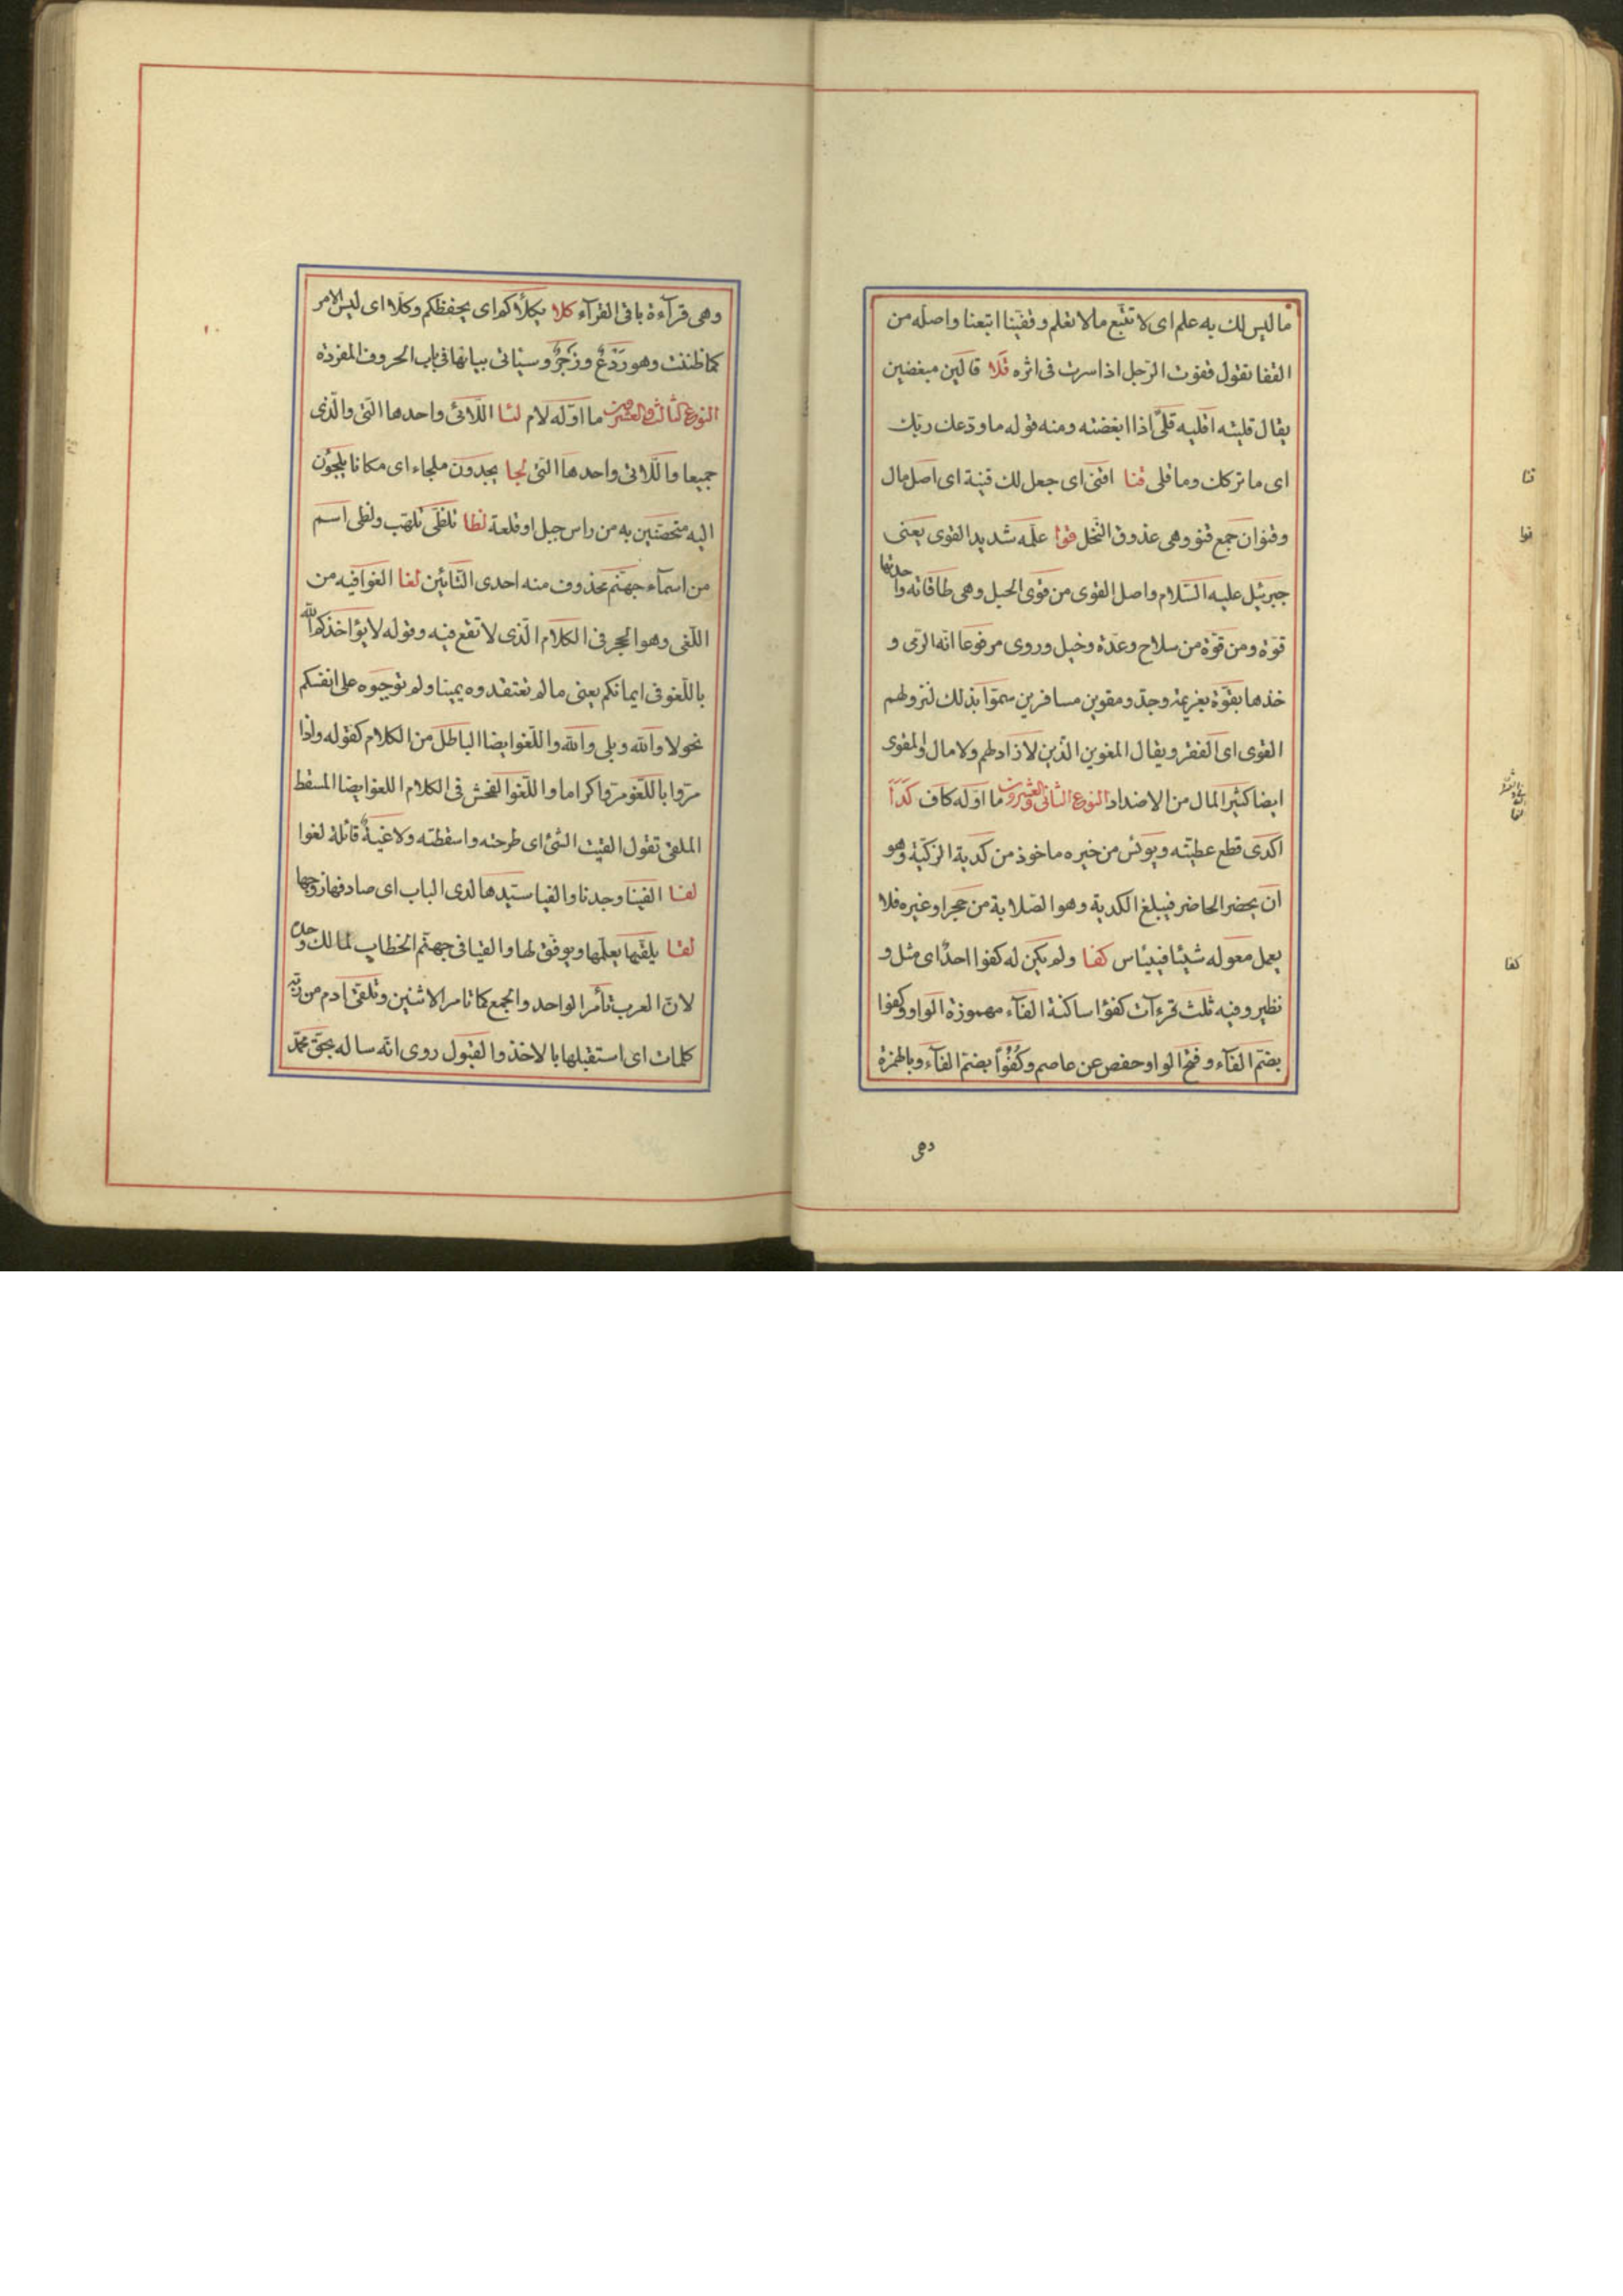 ما ليس لك به علم اى لا تتبع ما لا تعلم وقفّينا اتبعنا واصله من
القفا تقول قفوت الرّجل اذا سرت فى اثره قلا قالين مبغضين
يقال قليته اقليه قلىً اذا ابغضته ومنه قوله ما ودّعك ربّك
اى ما تركك وما قلى قنا اقنى اى جعل لك قنية اى اصل مال
وقنوان جمع قنو وهى عذوق النّخل قوا علّمه شديد القوى يعنى
جبرئيل عليه السّلام واصل القوى من قوى الحبل وهى طاقاته واحدتها
قوّة ومن قوّة من سلاح وعدّة وخيل وروى مرفوعا انّه الرّمى و
خذها بقوّة بعزيمة وجدّ ومقوين مسافرين سمّوا بذلك لنزولهم
القوى اى القفر ويقال المقوين الّذين لا زاد لهم ولا مال والمقوى
ايضا كثير المال من الاضداد النوع الثانى والعشرون ما اوّله كاف كدا
اكدى قطع عطيّته ويؤس من خيره ماخوذ من كدية الرّكيّة وهو
ان يحضر الحاضر فيبلغ الكدية وهو الصّلابة من حجر او غيره فلا
يعمل معوله شيئا فييئاس كفا ولم يكن له كفوا احدٌ اى مثل و
نظير وفيه ثلث قرءآت كفؤا ساكنة الفآء مهموزة الواو وكفوا
بضمّ الفآء وفتح الواو حفص عن عاصم وكُفُؤًا بضمّ الفآء وبالهمزة
وهى
قنا
قوا
كفا
وهى قرآءة باقى القرآء كلا يكلأكم اى يحفظكم وكلّا اى ليس الامر
كما ظننت وهو رَدْعٌ وزَجْرٌ وسيئاتى بيانها فى باب الحروف المفردة
النوع الثالث والعشرون ما اوّله لام لتا اللّائى واحدها الّتى والّذى
جميعا واللّاتى واحدها الّتى لجا يجدون ملجاء اى مكانا يلجؤن
اليه متحصّنين به من راس جبل او قلعة لظا تلظّى تلهّب ولظى اسم
من اسمآء جهنّم محذوف منه احدى التّائين لغا الغوا فيه من
اللّغى وهو الهجر فى الكلام الّذى لا نفع فيه وقوله لا يؤاخذكم الله
باللّغو فى ايمانكم يعنى ما لم تعتقدوه يمينا ولم توجبوه على انفسكم
نحو لا والله وبلى والله واللّغو ايضا الباطل من الكلام كقوله واذا
مرّوا باللّغو مرّوا كراما واللّغو الفحش فى الكلام اللغو ايضا المسقط
الملقى تقول القيت الشّئ اى طرحته واسقطته ولاغيةٌ قائلة لغوا
لفا الفينا وجدنا والفيا سيّدها لدى الباب اى صادفها زوجها
لقا يلقّيها يعلّمها ويوفّق لها والقيا فى جهنّم الخطاب لمالك وحده
لانّ العرب تأمر الواحد والجمع كما تامر الاثنين وتلقّى ادم من ربّه
كلمات اى استقبلها بالاخذ والقبول روى انّه ساله بحقّ محمّد